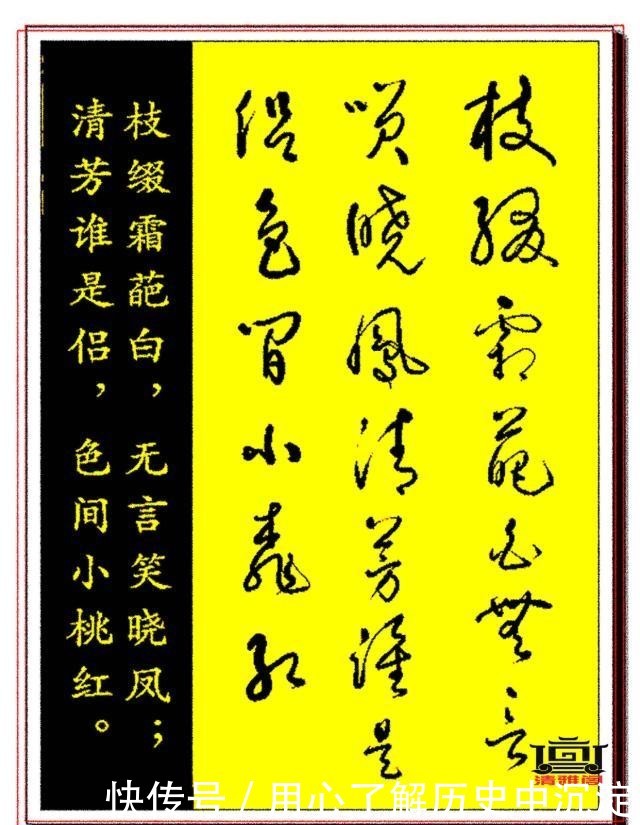 枝綴霜葩白無言
咲曉鳳清芳誰是
侶色間小桃紅
枝缀霜葩白，无言笑晓凤；
清芳谁是侣，色间小桃红。
清雅阁
快传号 / 用心了解历史中沉淀